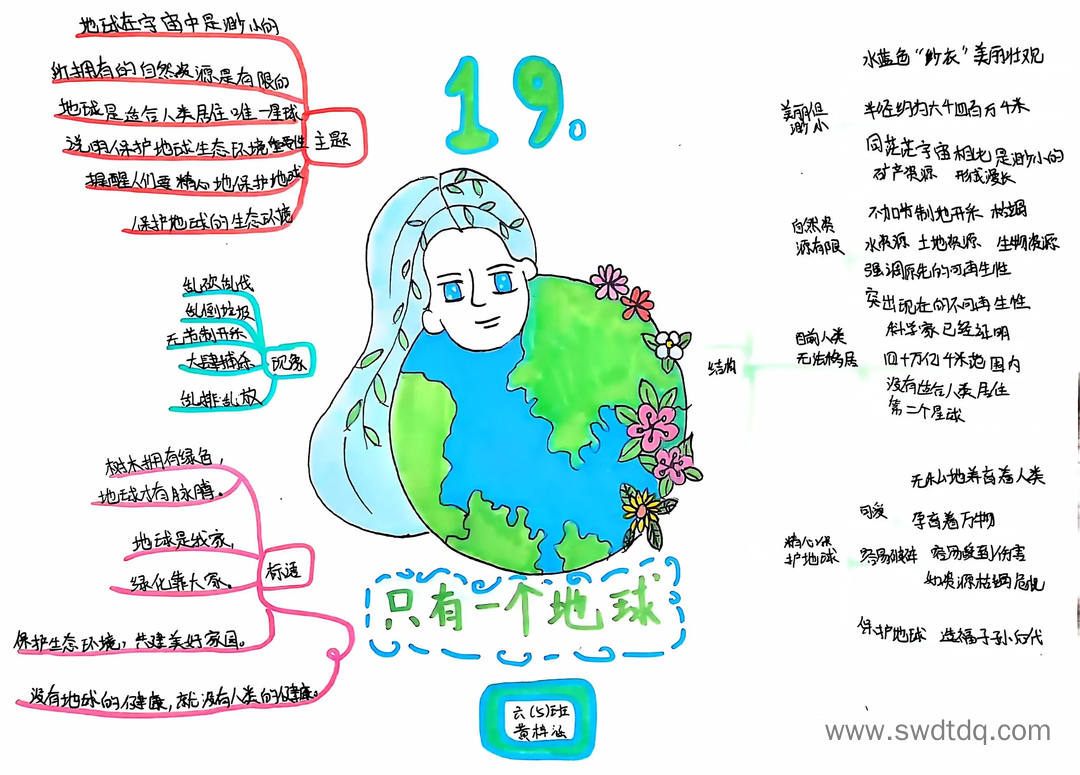 19.
只有一个地球
六(5)班
黄梓涵
主题
地球在宇宙中是渺小的
所拥有的自然资源是有限的
地球是适合人类居住唯一星球
说明保护地球生态环境重要性
提醒人们要精心地保护地球
保护地球的生态环境
现象
乱砍乱伐
乱倒垃圾
无节制开采
大肆捕杀
乱排乱放
标语
树木拥有绿色,
地球才有脉搏。
地球是我家,
绿化靠大家。
保护生态环境,共建美好家园。
没有地球的健康,就没有人类的健康。
结构
美丽但
渺小
水蓝色“纱衣”美丽壮观
半径约为六千四百万千米
同茫茫宇宙相比是渺小的
自然资
源有限
矿产资源 形成漫长
不加节制地开采 枯竭
水资源 土地资源 生物资源
强调原先的可再生性
突出现在的不可再生性
目前人类
无法移居
科学家已经证明
四十万亿千米范围内
没有适合人类居住
第二个星球
精心保
护地球
可爱
无私地养育着人类
孕育着万物
容易破碎 容易受到伤害
如资源枯竭危机
保护地球 造福子孙后代
www.swdtdq.com